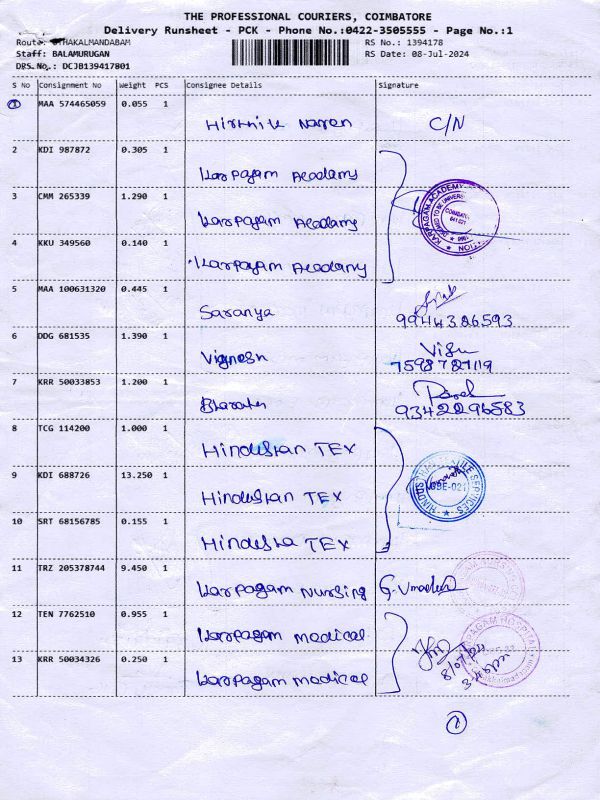 THE PROFESSIONAL COURIERS, COIMBATORE
Delivery Runsheet - PCK - Phone No.:0422-3505555 - Page No.:1
Route: OTHAKALMANDABAM
RS No.: 1394178
Staff: BALAMURUGAN
RS Date: 08-Jul-2024
DRS No.: DCJB139417801
S No Consignment No Weight PCS Consignee Details Signature
1 MAA 574465059 0.055 1 C/N
2 KDI 987872 0.305 1 Karpagam Academy
3 CMM 265339 1.290 1 Karpagam Academy
4 KKU 349560 0.140 1 Karpagam Academy
5 MAA 100631320 0.445 1 Saranya
6 DDG 681535 1.390 1 Vignesh
7 KRR 50033853 1.200 1 Bharath
9342296583
8 TCG 114200 1.000 1 Hindustan TEX
9 KDI 688726 13.250 1 Hindustan TEX
10 SRT 68156785 0.155 1 Hindusta TEX
11 TRZ 205378744 9.450 1 Karpagam Nursing
12 TEN 7762510 0.955 1 Karpagam medical
13 KRR 50034326 0.250 1 Karpagam medical